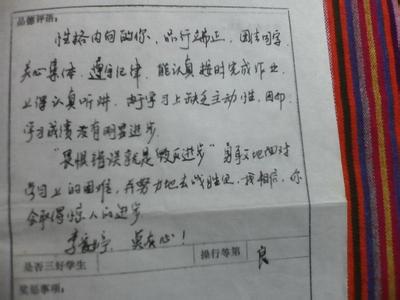 品德评语:
性格内向的你，品行端正，团结同学，
关心集体，遵守纪律，能认真按时完成作业，
上课认真听讲，由于学习上缺乏主动性，因而
学习成绩没有明显进步。
"畏惧错误就是毁灭进步"勇敢地面对
学习上的困难，并努力地去战胜它，我相信，你
会取得惊人的进步。
李 ，莫灰心！
是否三好学生 操行等第 良
奖惩事项: